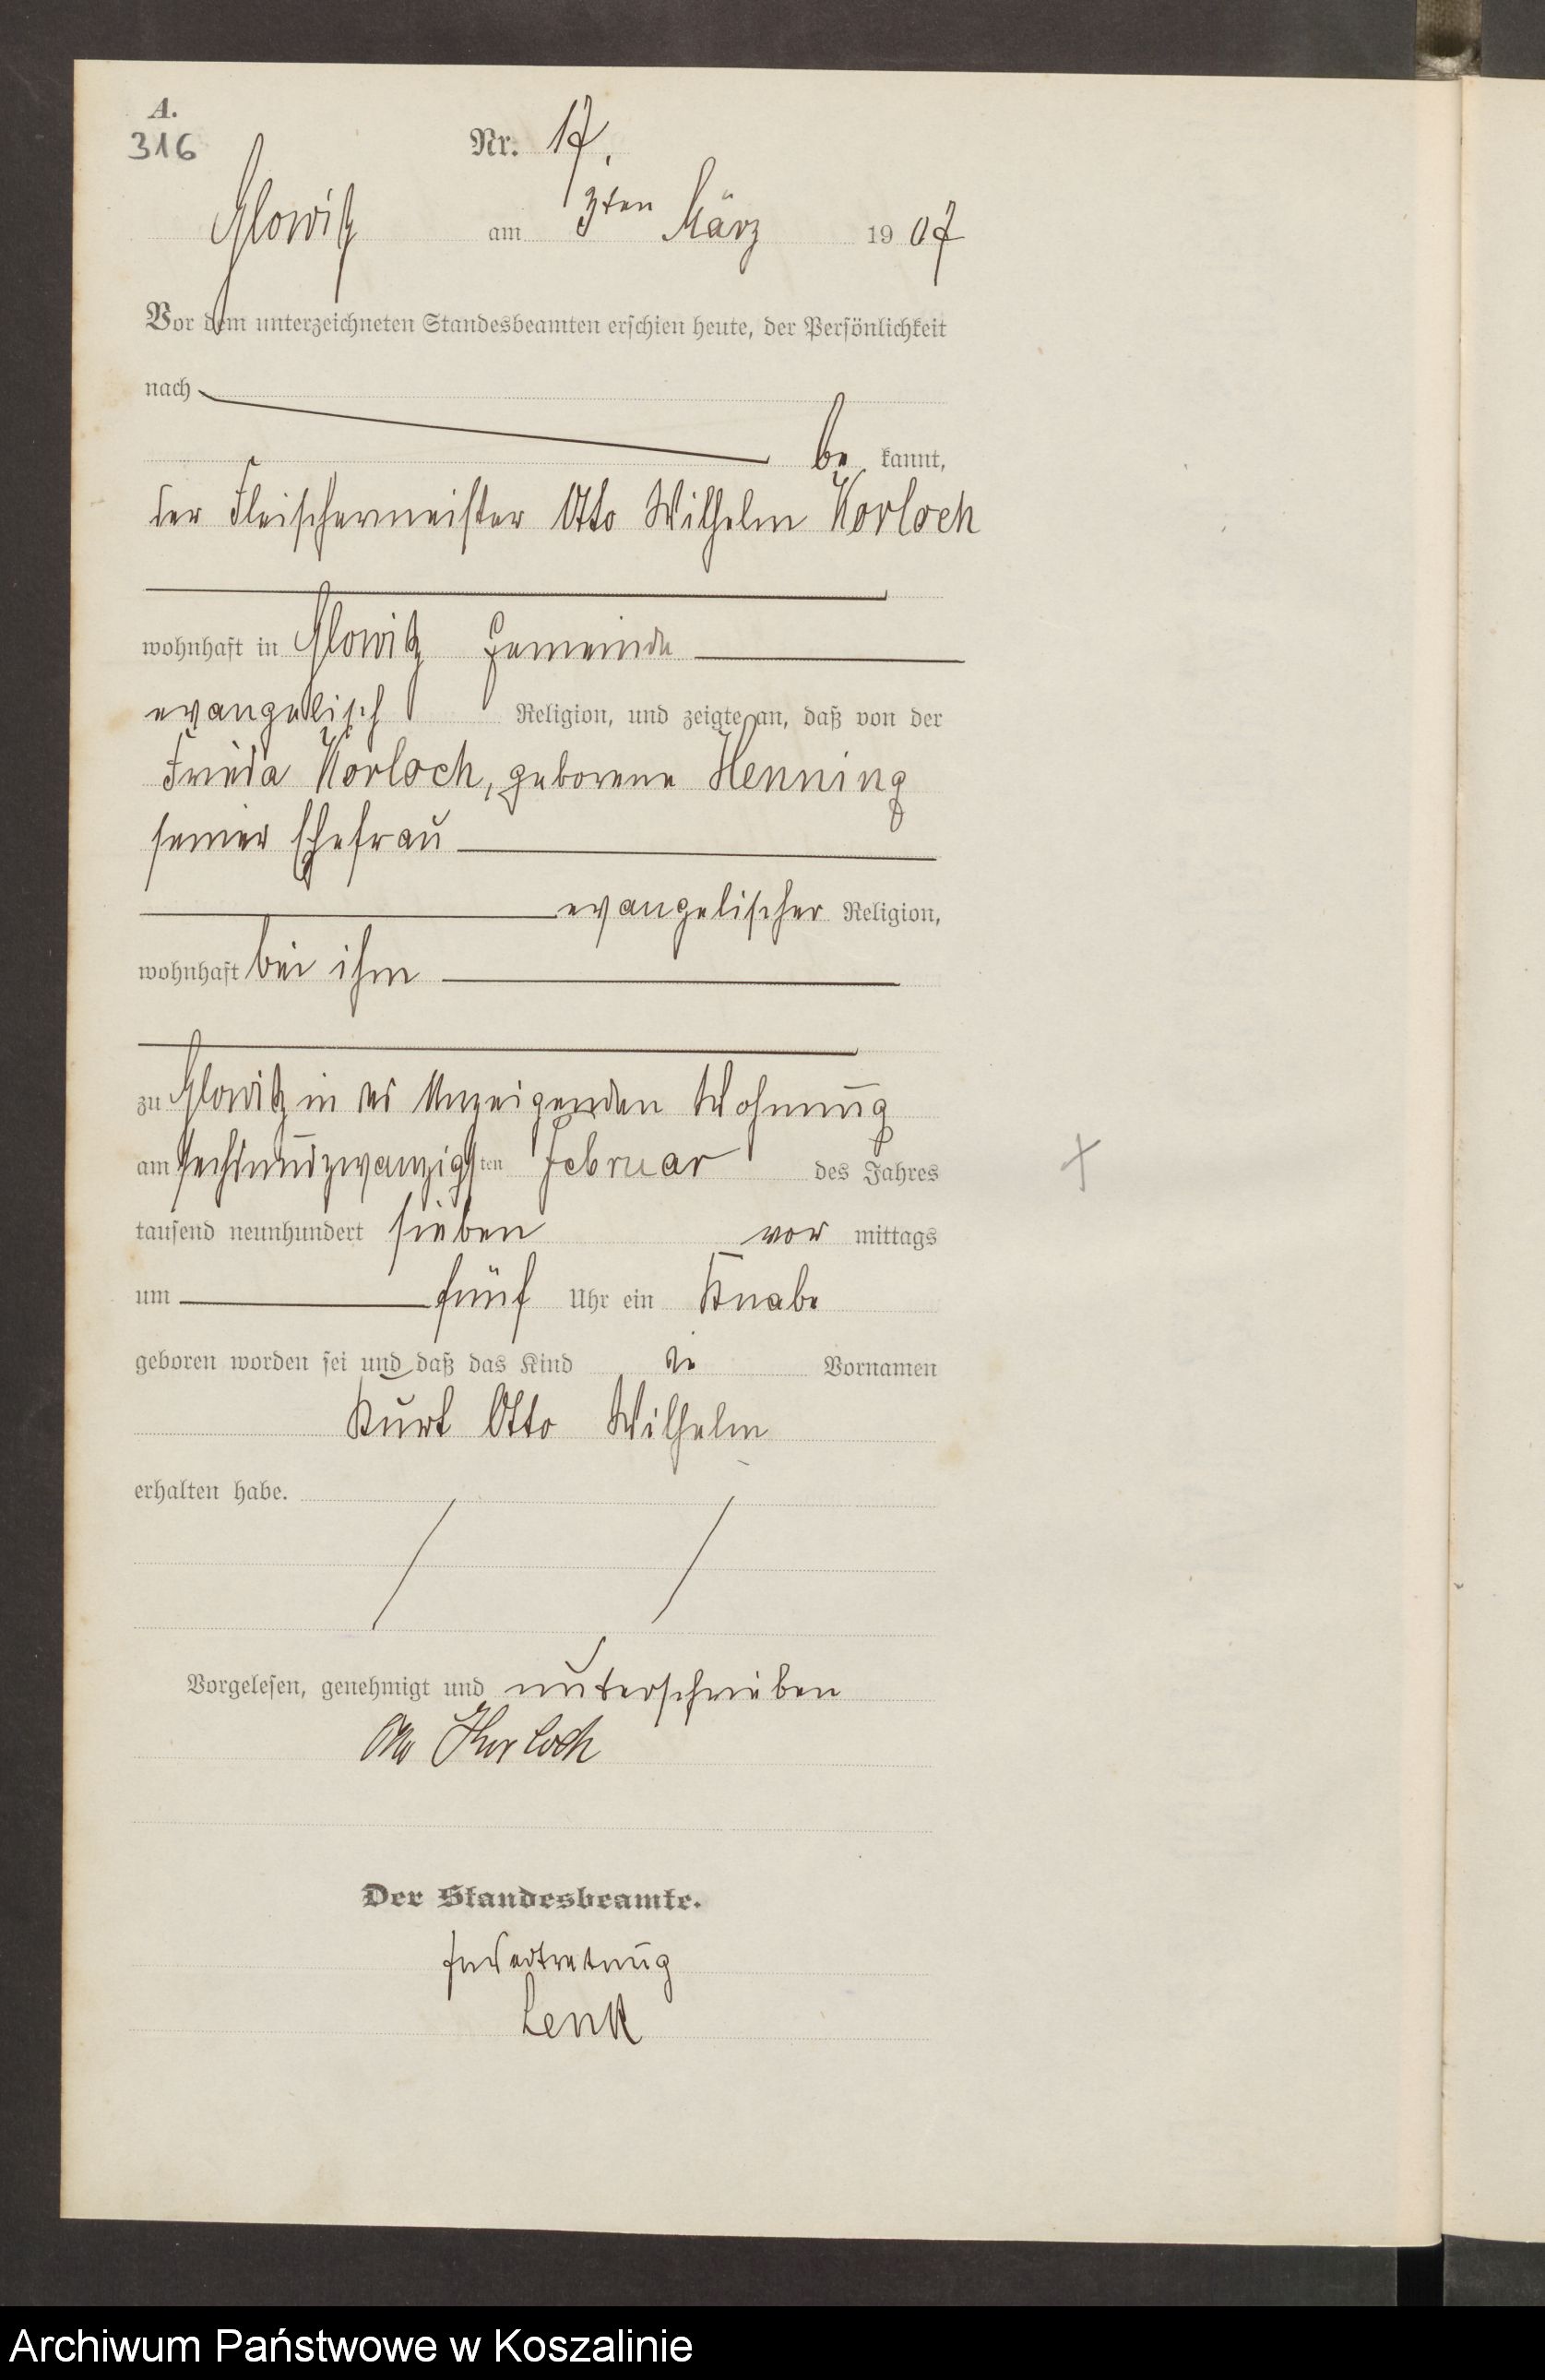 A.
316
Nr. 17.
Glowitz am 3ten März 1907
Vor dem unterzeichneten Standesbeamten erschien heute, der Persönlichkeit
nach
be kannt,
der Fleischermeister Otto Wilhelm Korloch
wohnhaft in Glowitz Gemeinde
evangelisch Religion, und zeigte an, daß von der
Frieda Korloch, geborene Henning
seiner Ehefrau
evangelischer Religion,
wohnhaft bei ihm
zu Glowitz in des Anzeigenden Wohnung
am sechsundzwanzigsten Februar des Jahres
tausend neunhundert sieben vor mittags
um fünf Uhr ein Knabe
geboren worden sei und daß das Kind die Vornamen
Kurt Otto Wilhelm
erhalten habe.
Vorgelesen, genehmigt und unterschrieben
Otto Korloch
Der Standesbeamte.
In Vertretung
Lenk
Archiwum Państwowe w Koszalinie